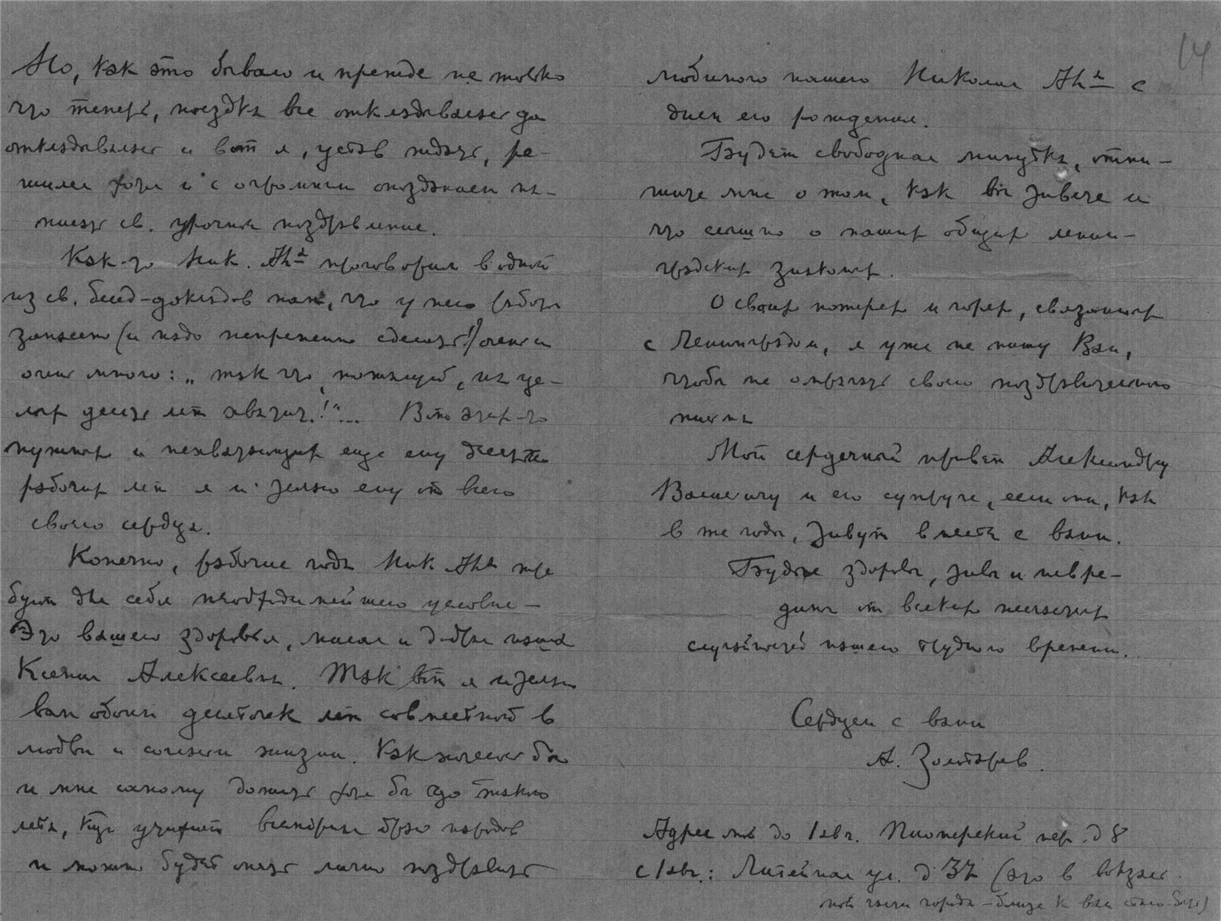 Но, как это бывало и прежде не только
что теперь, поездка все откладывалась да
откладывалась и вот я, устав ждать, ре-
шился хотя и с огромным опозданием на-
писать св. заочное поздравление.
Как-то Ник. Ан. проговорил в одной
из св. бесед-докладов нам, что у него работы
записано (и надо непременно сделать!) очень и
очень много: „так что, пожалуй, на це-
лых десять лет хватит!"... Вот этих-то
нужных и нехватающих еще ему десять
рабочих лет я и желаю ему от всего
своего сердца.
Конечно, рабочие годы Ник Ан. тре
буют для себя необходимейшего условия –
Это вашего здоровья, милая и добрая наша
Ксения Алексеевна. Так вот я и желаю
вам обоим десяток лет совместной в
любви и согласии жизни. Как хотелось бы
и мне самому дожить хотя бы до такого
лета, когда учинят всемирное братство народов
и можно будет опять лично поздравить
14
любимого нашего Николая Ан. с
днем его рождения.
Будет свободная минутка, отпи-
шите мне о том, как вы живете и
что слышно о наших общих ленин-
градских знакомых.
О своих потерях и горях, связанных
с Ленинградом, я уже не пишу Вам,
чтобы не омрачать своего поздравительного
письма
Мой сердечный привет Александру
Васильевичу и его супруге, если они, как
в те годы, живут вместе с вами.
Будьте здоровы, живы и невре-
димы от всяких несчастных
случайностей нашего трудного времени.
Сердцем с вами
А. Золотарев.
Адрес мой до 1 авг. Пионерский пер. д 8
с 1 авг.: Литейная ул. д 37 (это в вокзаль
ной части города – ближе к вам